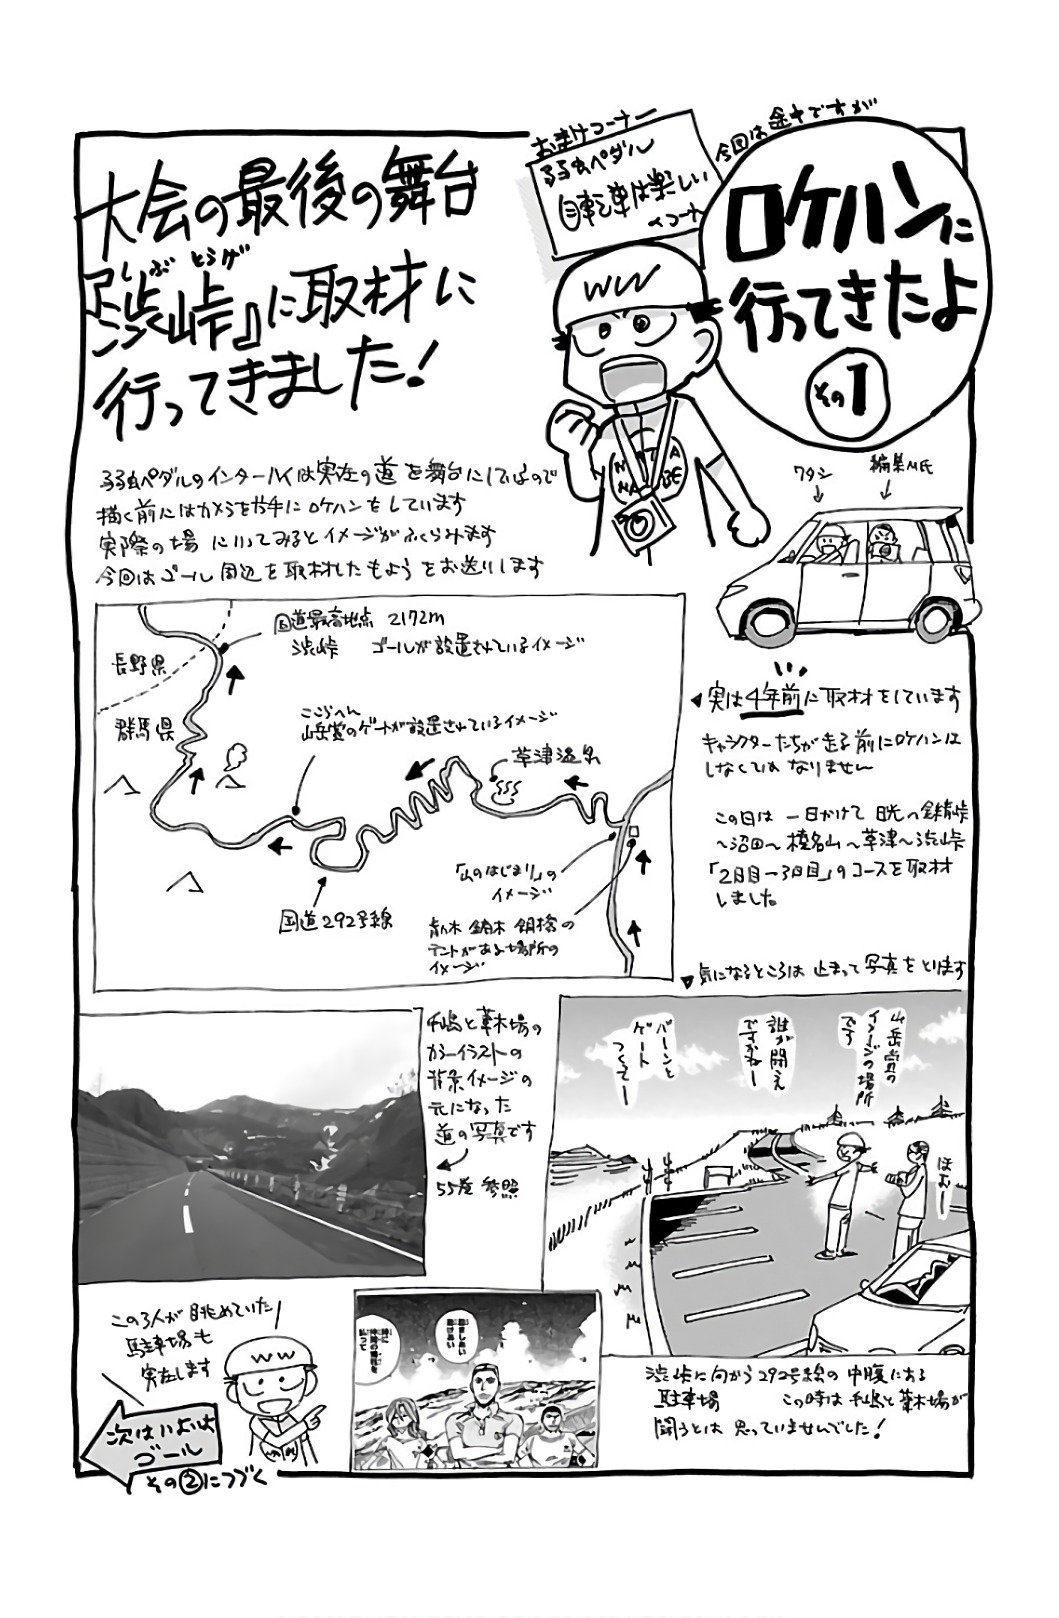 おまけコーナー
弱虫ペダル
自転車は楽しい
コーナー
今回は途中ですが
ロケハンに
行ってきたよ
その1
大会の最後の舞台
しぶとうげ
『渋峠』に取材に
行ってきました！
弱虫ペダルのインターハイは実在の道を舞台にしているので
描く前にはカメラを片手にロケハンをしています
実際の場に行ってみるとイメージがふくらみます
今回はゴール周辺を取材したもようをお送りします
WW
WATA
NABE
ワタシ
編集M氏
国道最高地点 2172m
渋峠 ゴールが設置されているイメージ
長野県
群馬県
ここらへん
山岳賞のゲートが設置されているイメージ
草津温泉
「山のはじまり」の
イメージ
国道292号線
テントがある場所の
イメージ
実は4年前に取材をしています
キャラクターたちが走る前にロケハンは
しなくてはなりません
この日は 一日かけて 日光〜金精峠
〜沼田〜榛名山〜草津〜渋峠
「2日目ー3日目」のコースを取材
しました。
気になるところは 止まって写真をとります
手嶋と葦木場の
カラーイラストの
背景イメージの
元になった
道の写真です
55巻 参照
山岳賞の
イメージの場所
です
誰が閉え
ですかねー
バーンと
ゲート
つくてー
ほむー
渋峠に向かう292号線の中腹にある
駐車場 この時は手嶋と葦木場が
闘うとは思っていませんでした！
この3人が眺めていた
駐車場も
実在します
WW
次はいよいよ
ゴール
その②につづく